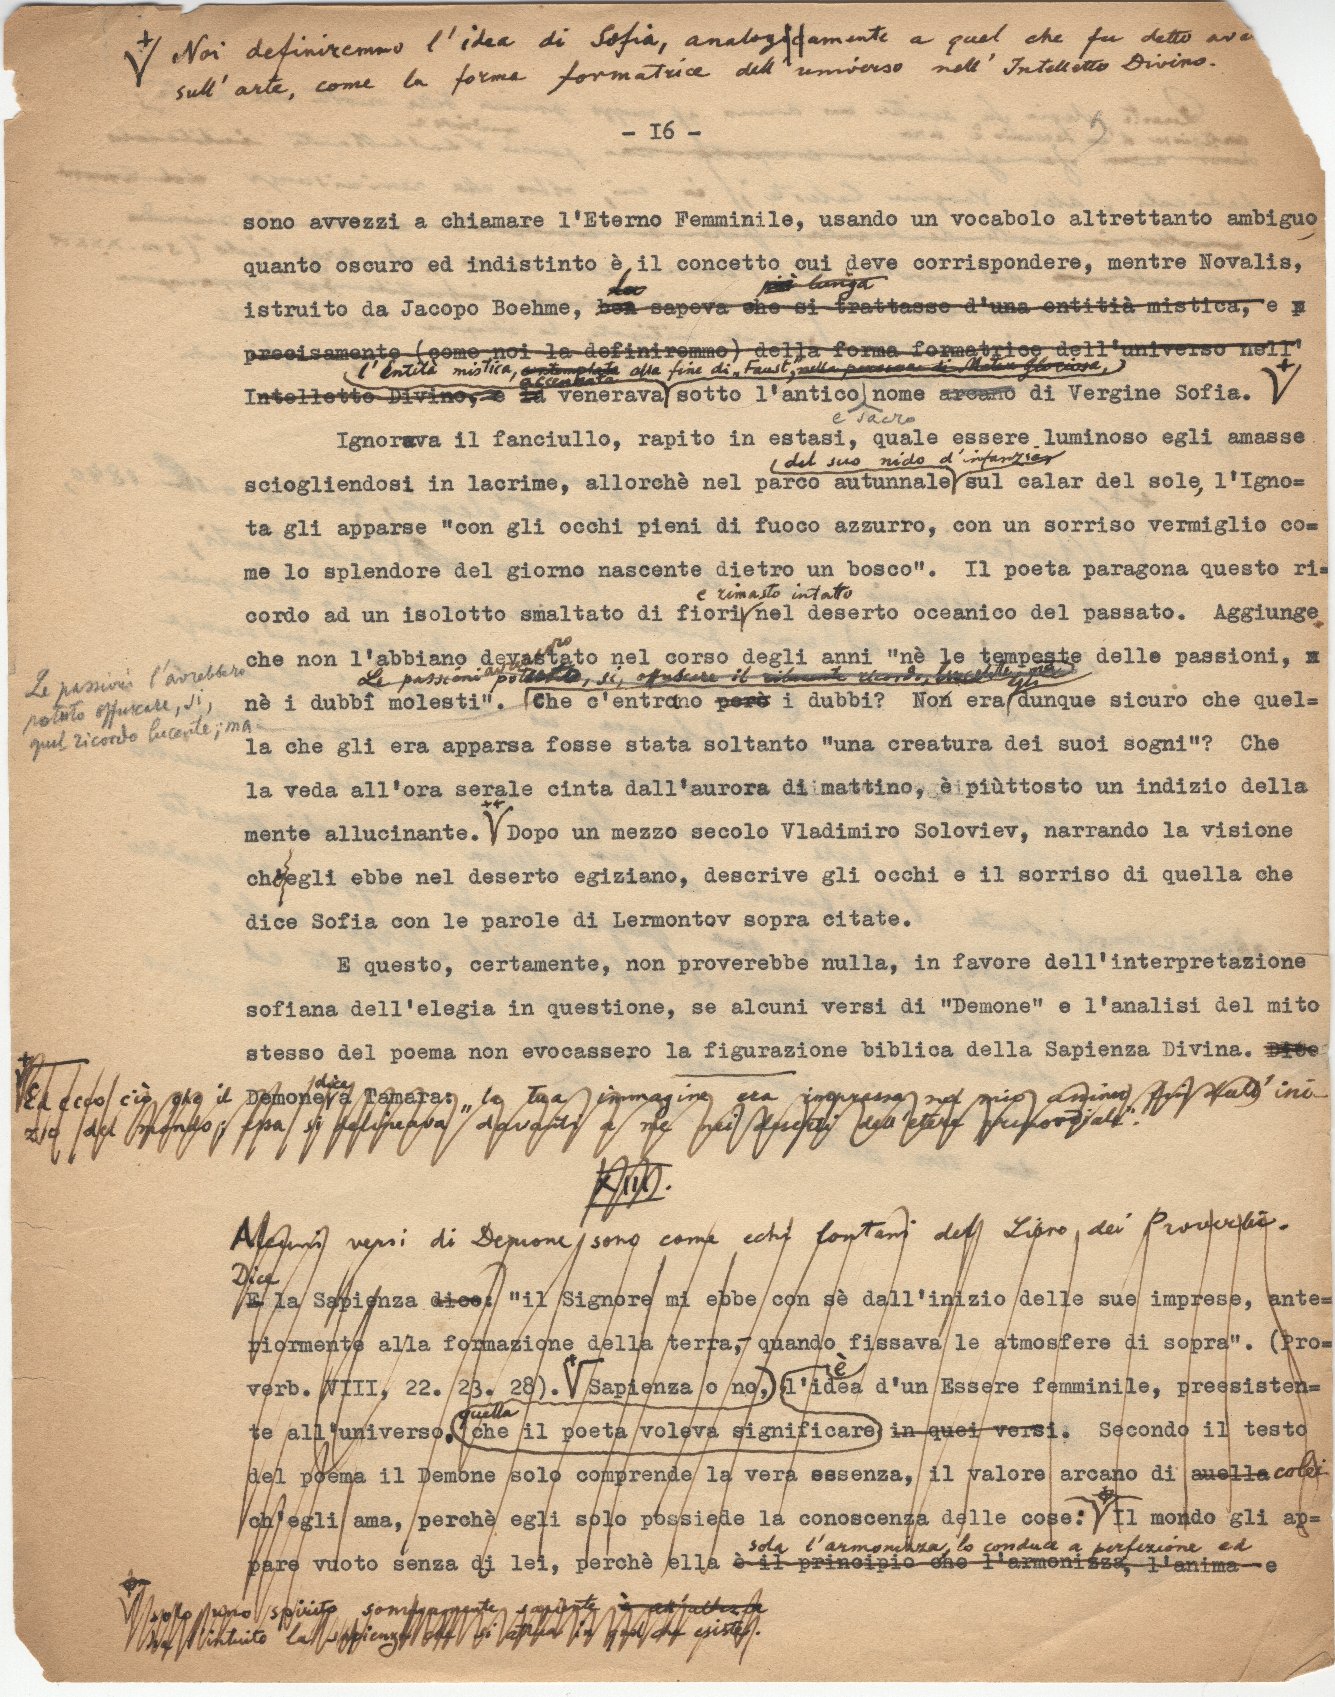 Noi definiremmo l'idea di Sofia, analogicamente a quel che fu detto
sull'arte, come la forma formatrice dell'universo nell'Intelletto Divino.
- 16 -
sono avvezzi a chiamare l'Eterno Femminile, usando un vocabolo altrettanto ambiguo
quanto oscuro ed indistinto è il concetto cui deve corrispondere, mentre Novalis,
istruito da Jacopo Boehme, ben sapeva che si trattasse d'una entitià mistica, e
precisamente (come noi la definiremmo) della forma formatrice dell'universo nell'
l'entità mistica, alla fine di "Faust", nella persona di Mater Gloriosa,
Intelletto Divino, e la venerava sotto l'antico nome arcano di Vergine Sofia.
e sacro
Ignorava il fanciullo, rapito in estasi, quale essere luminoso egli amasse
del suo nido d'infanzia
sciogliendosi in lacrime, allorchè nel parco autunnale sul calar del sole, l'Igno=
ta gli apparse "con gli occhi pieni di fuoco azzurro, con un sorriso vermiglio co=
me lo splendore del giorno nascente dietro un bosco". Il poeta paragona questo ri=
e rimasto intatto
cordo ad un isolotto smaltato di fiori nel deserto oceanico del passato. Aggiunge
che non l'abbiano devastato nel corso degli anni "nè le tempeste delle passioni,
Le passioni l'avrebbero
potuto offuscare, sì,
quel ricordo lucente; ma
Le passioni potuto, sì, offuscare il ricordo,
nè i dubbî molesti". Che c'entrano però i dubbi? Non era egli dunque sicuro che quel=
la che gli era apparsa fosse stata soltanto "una creatura dei suoi sogni"? Che
la veda all'ora serale cinta dall'aurora di mattino, è piùttosto un indizio della
mente allucinante. Dopo un mezzo secolo Vladimiro Soloviev, narrando la visione
ch'egli ebbe nel deserto egiziano, descrive gli occhi e il sorriso di quella che
dice Sofia con le parole di Lermontov sopra citate.
E questo, certamente, non proverebbe nulla, in favore dell'interpretazione
sofiana dell'elegia in questione, se alcuni versi di "Demone" e l'analisi del mito
stesso del poema non evocassero la figurazione biblica della Sapienza Divina. Dice
Ed ecco ciò che il Demone dice a Tamara: "la tua immagine era impressa nel mio animo fin dall'ini-
zio del mondo; essa si delineava davanti a me nei deserti dell'etere primordiale".
XIII.
Alcuni versi di Demone sono come echi lontani del Libro dei Proverbi.
Dice
E la Sapienza dice: "il Signore mi ebbe con sè dall'inizio delle sue imprese, ante=
riormente alla formazione della terra,- quando fissava le atmosfere di sopra". (Pro=
verb. VIII, 22. 23. 28). Sapienza o no, è l'idea d'un Essere femminile, preesisten=
quella
te all'universo, che il poeta voleva significare in quei versi. Secondo il testo
del poema il Demone solo comprende la vera essenza, il valore arcano di quella colei
ch'egli ama, perchè egli solo possiede la conoscenza delle cose: Il mondo gli ap=
sola l'armonizza, lo conduce a perfezione ed
pare vuoto senza di lei, perchè ella è il principio che l'armonizza, l'anima e
solo uno spirito sommamente sapiente
ha l'intuito la sapienza che si attua in quel che esiste.